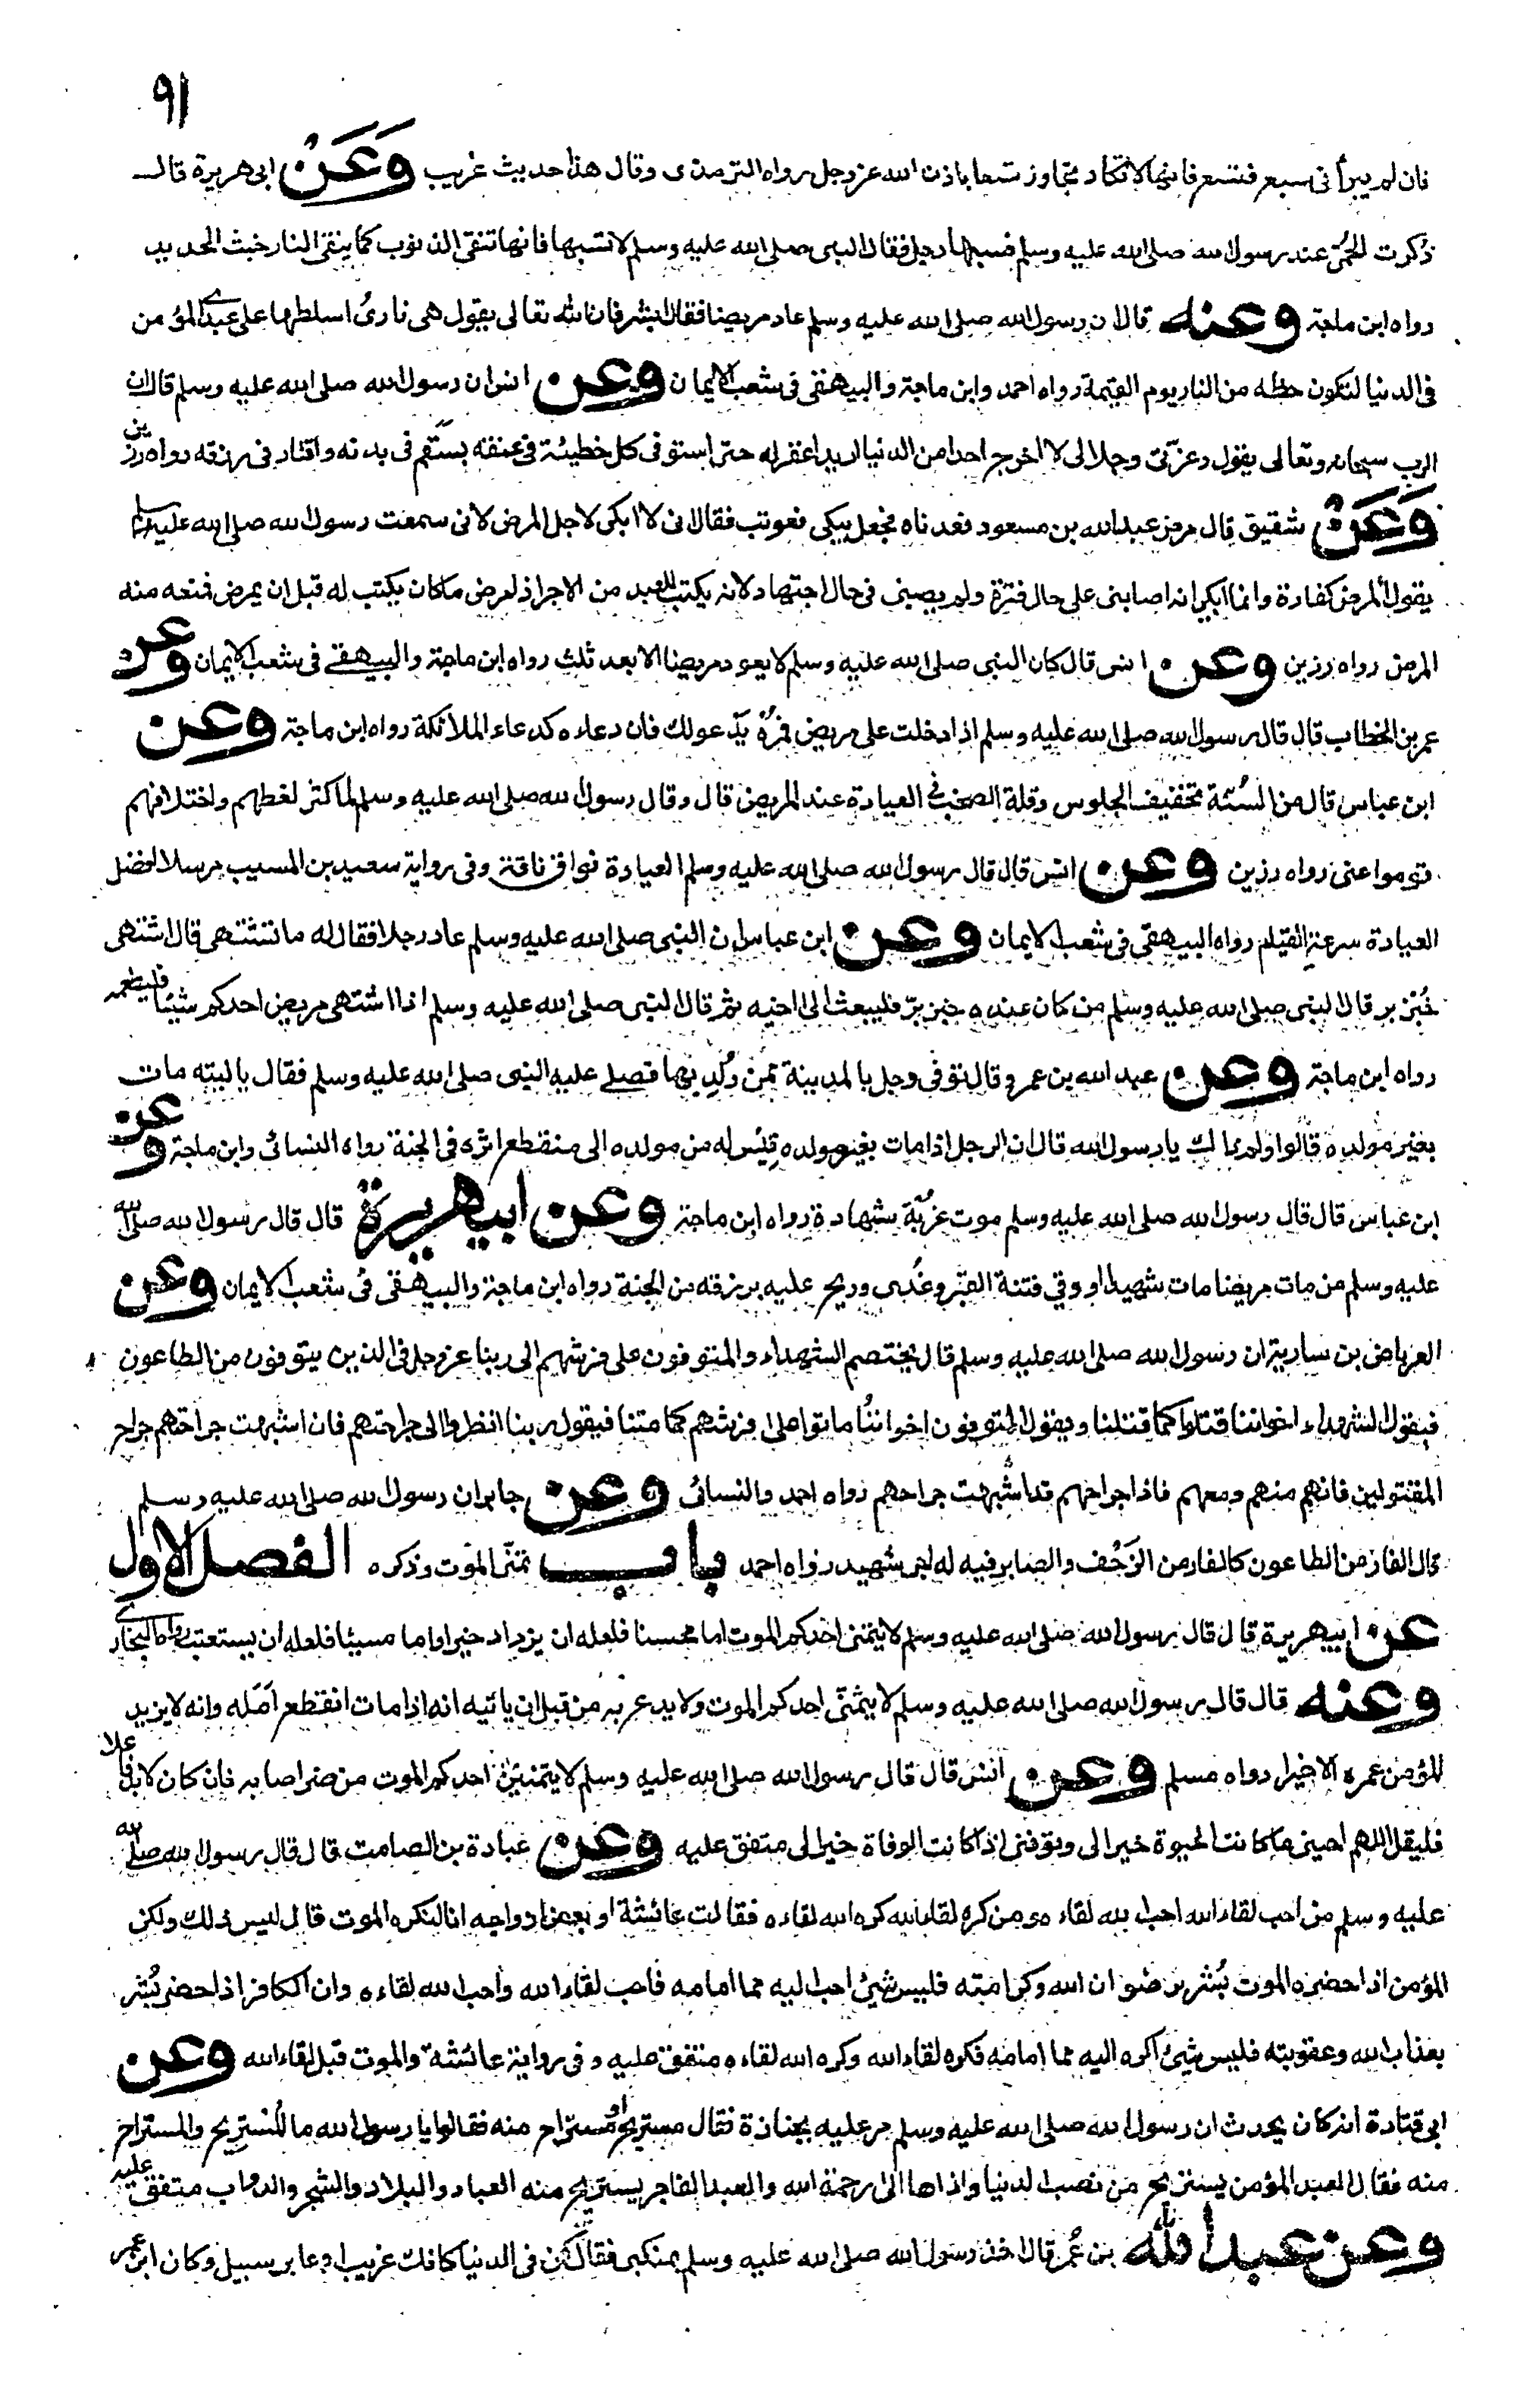 ٩١
فان لم يبرأ فى سبع فتسع فانها لا تكاد تجاوز تسعا باذن الله عز وجل رواه الترمذى وقال هذا حديث غريب وَعَنْ ابى هريرة قال
ذُكرت الحمّى عند رسول الله صلى الله عليه وسلم فسبها رجل فقال النبى صلى الله عليه وسلم لا تسبها فانها تنقى الذنوب كما ينقى النار خبث الحديد
رواه ابن ماجة وعنه قال ان رسول الله صلى الله عليه وسلم عاد مريضا فقال ابشر فان الله تعالى يقول هى نارى اسلطها على عبدى المؤمن
فى الدنيا لتكون حظه من النار يوم القيمة رواه احمد وابن ماجة والبيهقى فى شعب الايمان وعن انس ان رسول الله صلى الله عليه وسلم قال ان
الرب سبحانه وتعالى يقول وعزتى وجلالى لا اخرج احدا من الدنيا اريد اغفر له حتى استوفى كل خطيئة فى عنقه بسقم فى بدنه واقتار فى رزقه رواه رزين
وَعَنْ شقيق قال مرض عبد الله بن مسعود فعدناه فجعل يبكى فعوتب فقال انى لا ابكى لاجل المرض لانى سمعت رسول الله صلى الله عليه وسلم
يقول المرض كفارة وانما ابكى انه اصابنى على حال فترة ولم يصبنى فى حال اجتهاد لانه يكتب للعبد من الاجر اذا مرض ما كان يكتب له قبل ان يمرض فمنعه منه
المرض رواه رزين وعن انس قال كان النبى صلى الله عليه وسلم لا يعود مريضا الا بعد ثلث رواه ابن ماجة والبيهقى فى شعب الايمان وعن
عمر بن الخطاب قال قال رسول الله صلى الله عليه وسلم اذا دخلت على مريض فمره يدعو لك فان دعاءه كدعاء الملائكة رواه ابن ماجة وعن
ابن عباس قال من السُنّة تخفيف الجلوس وقلة الصخب فى العيادة عند المريض قال وقال رسول الله صلى الله عليه وسلم لما كثر لغطهم واختلافهم
قوموا عنى رواه رزين وعن انس قال قال رسول الله صلى الله عليه وسلم العيادة فواق ناقة وفى رواية سعيد بن المسيب مرسلا افضل
العيادة سرعة القيام رواه البيهقى فى شعب الايمان وعن ابن عباس ان النبى صلى الله عليه وسلم عاد رجلا فقال له ما تشتهى قال اشتهى
خُبْز بر قال النبى صلى الله عليه وسلم من كان عنده خبز برّ فليبعث الى اخيه ثم قال النبى صلى الله عليه وسلم اذا اشتهى مريض احدكم شيئا فليطعمه
رواه ابن ماجة وعن عبد الله بن عمرو قال توفى رجل بالمدينة ممن وُلد بها فصلى عليه النبى صلى الله عليه وسلم فقال يا ليته مات
بغير مولده قالوا ولم ذاك يا رسول الله قال ان الرجل اذا مات بغير مولده قيس له من مولده الى منقطع اثره فى الجنة رواه النسائى وابن ماجة وعن
ابن عباس قال قال رسول الله صلى الله عليه وسلم موت غربة شهادة رواه ابن ماجة وعن ابيهريرة قال قال رسول الله صلى الله
عليه وسلم من مات مريضا مات شهيدا او وقي فتنة القبر وغُدى وريح عليه برزقه من الجنة رواه ابن ماجة والبيهقى فى شعب الايمان وعن
العرباض بن سارية ان رسول الله صلى الله عليه وسلم قال يختصم الشهداء والمتوفون على فرشهم الى ربنا عز وجل فى الذين يتوفون من الطاعون
فيقول الشهداء اخواننا قتلوا كما قتلنا ويقول المتوفون اخواننا ماتوا على فرشهم كما متنا فيقول ربنا انظروا الى جراحتهم فان اشبهت جراحتهم جراح
المقتولين فانهم منهم ومعهم فاذا جراحهم قد اشبهت جراحهم رواه احمد والنسائى وعن جابر ان رسول الله صلى الله عليه وسلم
قال الفار من الطاعون كالفار من الزَحْف والصابر فيه له اجر شهيد رواه احمد باب تمنى الموت وذكره الفصل الاول
عن ابيهريرة قال قال رسول الله صلى الله عليه وسلم لا يتمنى احدكم الموت اما محسنا فلعله ان يزداد خيرا واما مسيئا فلعله ان يستعتب رواه البخارى
وعنه قال قال رسول الله صلى الله عليه وسلم لا يتمنّى احدكم الموت ولا يدع به من قبل ان ياتيه انه اذا مات انقطع امَله وانه لا يزيد
المؤمن عمره الا خيرا رواه مسلم وعن انس قال قال رسول الله صلى الله عليه وسلم لا يتمنينّ احدكم الموت من ضر اصابه فان كان لا بد فاعلا
فليقل اللهم احينى ما كانت الحيوة خيرا لى وتوفنى اذا كانت الوفاة خيرا لى متفق عليه وعن عبادة بن الصامت قال قال رسول الله صلى الله
عليه وسلم من احب لقاء الله احب الله لقاءه ومن كره لقاء الله كره الله لقاءه فقالت عائشة او بعض ازواجه انا لنكره الموت قال ليس ذلك ولكن
المؤمن اذا حضره الموت بُشر برضوان الله وكرامته فليس شئ احب اليه مما امامه فاحب لقاء الله واحب الله لقاءه وان الكافر اذا حضر بُشر
بعذاب الله وعقوبته فليس شئ اكره اليه مما امامه فكره لقاء الله وكره الله لقاءه متفق عليه وفى رواية عائشة والموت قبل لقاء الله وعن
ابى قتادة انه كان يحدث ان رسول الله صلى الله عليه وسلم مر عليه بجنازة فقال مستريح او مستراح منه فقالوا يا رسول الله ما المستريح والمستراح
منه فقال العبد المؤمن يستريح من نصب الدنيا واذاها الى رحمة الله والعبد الفاجر يستريح منه العباد والبلاد والشجر والدواب متفق عليه
وعن عبد الله بن عُمر قال اخذ رسول الله صلى الله عليه وسلم بمنكبى فقال كُن فى الدنيا كانك غريب او عابر سبيل وكان ابن عمر